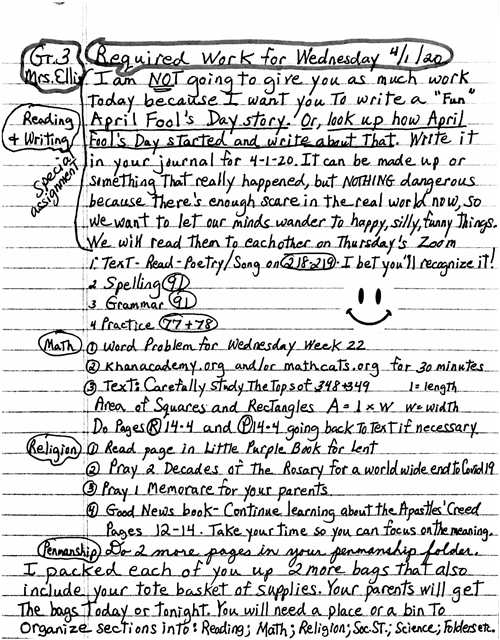 Gr. 3
Mrs. Ellis
Required Work for Wednesday 4/1/20
I am NOT going to give you as much work
today because I want you To write a "Fun"
Reading
+ Writing
Special
assignment
April Fool's Day story. Or, look up how April
Fool's Day started and write about That. Write it
in your journal for 4-1-20. It can be made up or
something That really happened, but NOTHING dangerous
because there's enough scare in the real world now, so
we want to let our minds wander to happy, silly, funny Things.
We will read Them to eachother on Thursday's Zoom
1. Text - Read - Poetry/Song on 218-219 - I bet you'll recognize it!
2 Spelling 91
3 Grammar 91
4 Practice 77+78
Math
① Word Problem for Wednesday Week 22
② Khanacademy.org and/or mathcats.org for 30 minutes
③ Text: Carefully study The Tops of 348+349 l = length
Area of Squares and Rectangles A = l x w w = width
Do Pages R 14-4 and P 14-4 going back to Text if necessary.
Religion
① Read page in Little Purple Book for Lent
② Pray 2 Decades of the Rosary for a world wide end to Covid 19
③ Pray 1 Memorare for your parents.
④ Good News book - Continue learning about the Apostles' Creed
Pages 12-14. Take your time so you can focus on the meaning.
Penmanship
Do 2 more pages in your penmanship folder.
I packed each of you up 2 more bags that also
include your tote basket of supplies. Your parents will get
The bags Today or Tonight. You will need a place or a bin to
Organize sections into: Reading; Math; Religion; Soc. St.; Science; Folders etc.